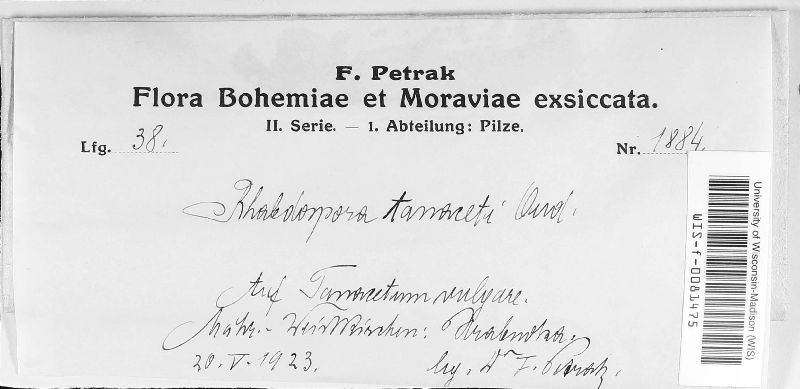 F. Petrak
Flora Bohemiae et Moraviae exsiccata.
II. Serie. — 1. Abteilung: Pilze.
Lfg. 38.
Nr. 1884.
Rhabdospora tanaceti Oud.
Auf Tanacetum vulgare.
Mähr.-Weisskirchen: Hrabuvka.
20.V.1923.
leg. Dr F. Petrak.
University of Wisconsin-Madison (WIS)
WIS-f-0081475